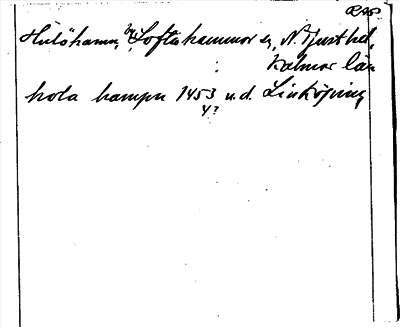 Hulöhamn, Loftahammar sn, N. Tjust hd,
Kalmar län
hola hampn 1453 u.d. Linköping
4?